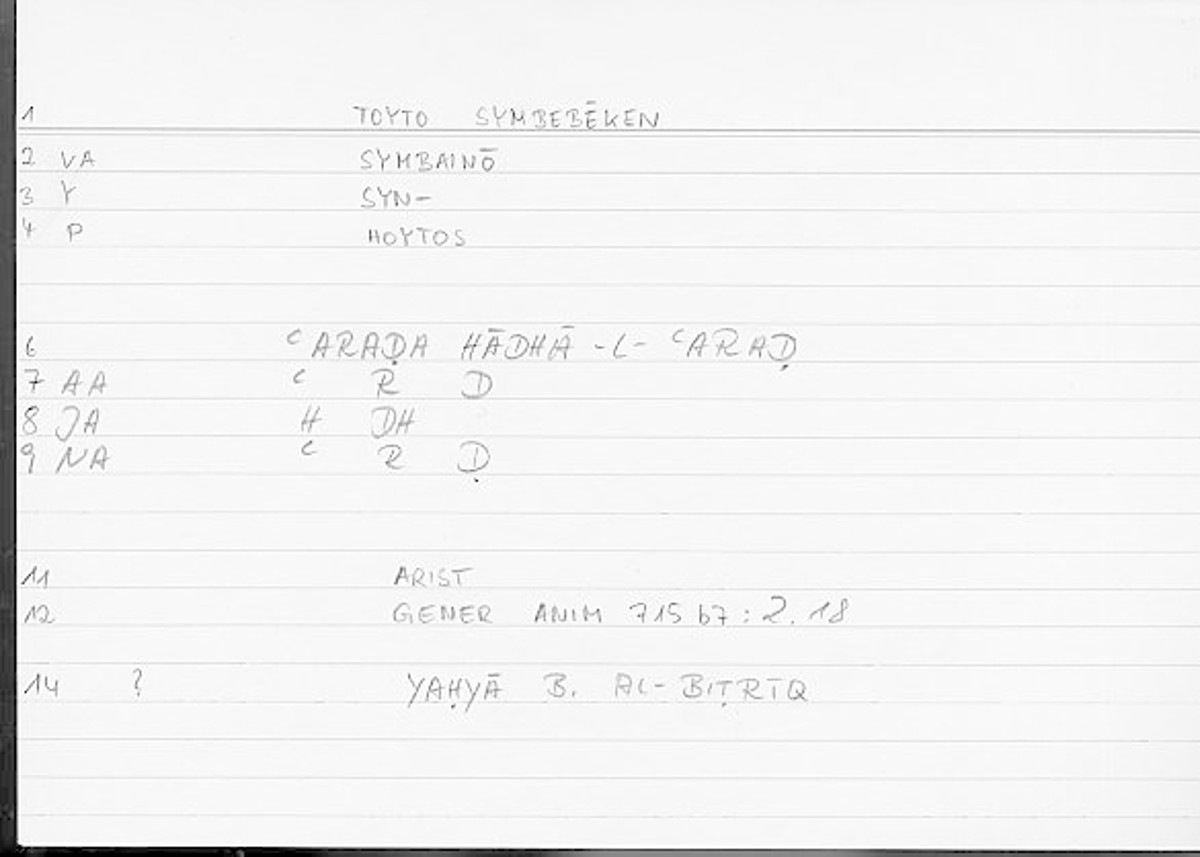 1 TOYTO SYMBEBĒKEN
2 VA SYMBAINŌ
3 Y SYN-
4 P HOYTOS
6 ᶜARAḌA HĀDHĀ -L- ᶜARAḌ
7 AA ᶜ R D
8 JA H DH
9 NA ᶜ R Ḍ
11 ARIST
12 GENER ANIM 715 b7 : 2. 18
14 ? YAḤYĀ B. AL-BIṬRĪQ